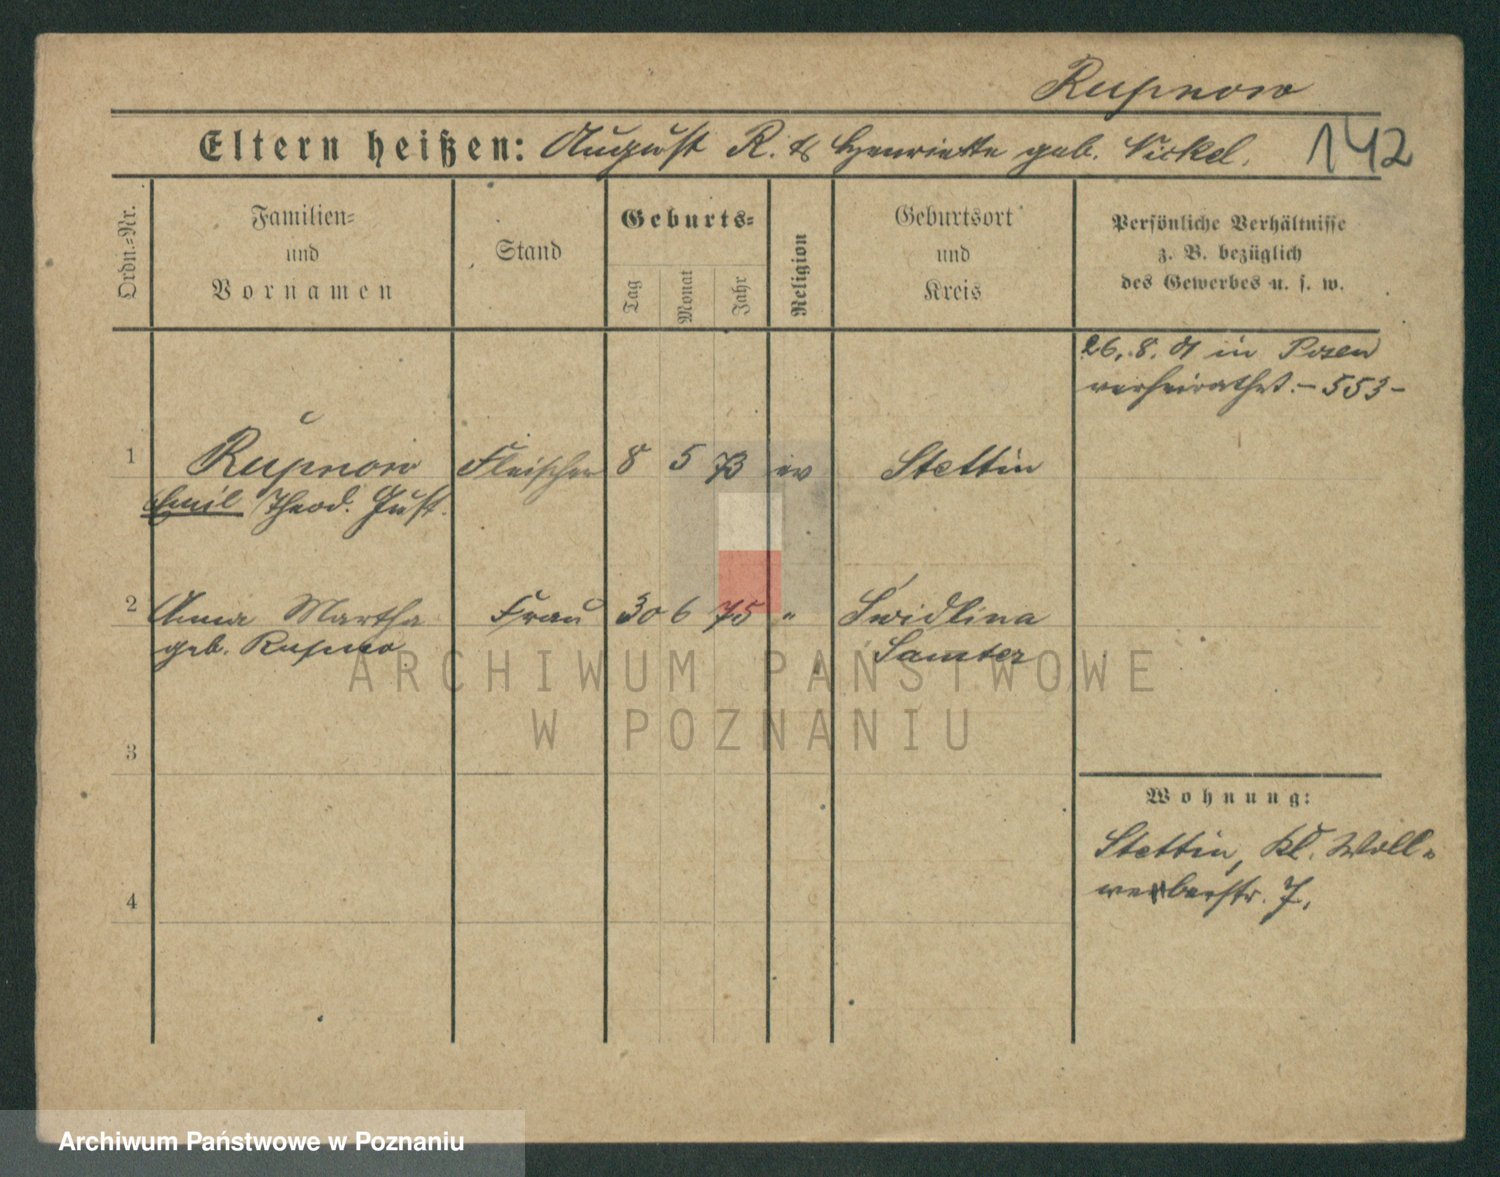 Rupnow
Eltern heißen: August R. & Henriette geb. Nickel. 142
Ordn.-Nr.
Familien-
und
Vornamen
Stand
Geburts-
Tag
Monat
Jahr
Religion
Geburtsort
und
Kreis
Persönliche Verhältnisse
z. B. bezüglich
des Gewerbes u. s. w.
26. 8. 01 in Posen
verheirathet. – 553 –
1 Rupnow Fleischer 8 5 73 ev Stettin
Emil Theod. Gust.
2 Anna Martha Frau 30 6 75 " Swidlina
geb. Rupnow Samter
ARCHIWUM PAŃSTWOWE
W POZNANIU
3
Wohnung:
Stettin, Kl. Woll-
weberstr. 7.
4
Archiwum Państwowe w Poznaniu